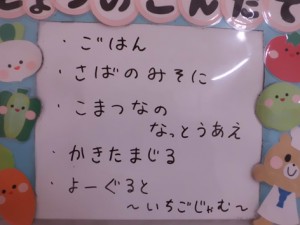 きょうのこんだて
・ごはん
・さばのみそに
・こまつなの
なっとうあえ
・かきたまじる
・よーぐると
～いちごじゃむ～